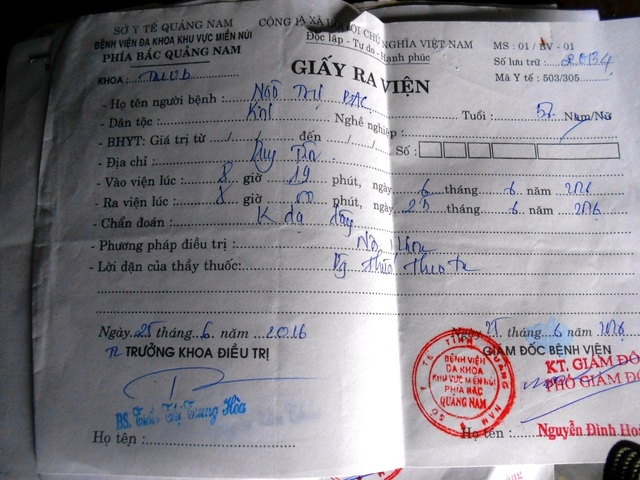 SỞ Y TẾ QUẢNG NAM
BỆNH VIỆN ĐA KHOA KHU VỰC MIỀN NÚI
PHÍA BẮC QUẢNG NAM
KHOA :
CỘNG HÒA XÃ HỘI CHỦ NGHĨA VIỆT NAM
Độc lập - Tự do - Hạnh phúc
MS : 01 / BV - 01
Số lưu trữ : 20134
Mã Y tế : 503/305
GIẤY RA VIỆN
- Họ tên người bệnh : NGÔ THỊ BAC Tuổi : Nam/Nữ
- Dân tộc : Nghề nghiệp :
- BHYT: Giá trị từ / / đến / / Số :
- Địa chỉ : Duy
- Vào viện lúc : 8 giờ 19 phút, ngày 6 tháng 6 năm 2016
- Ra viện lúc : 8 giờ 00 phút, ngày 25 tháng 6 năm 2016
- Chẩn đoán : K dạ dày
- Phương pháp điều trị : Nội khoa
- Lời dặn của thầy thuốc:
Ngày 25 tháng 6 năm 2016
TRƯỞNG KHOA ĐIỀU TRỊ
BS. Trần Thị Trung Hòa
Họ tên :
Ngày 25 tháng 6 năm 2016
GIÁM ĐỐC BỆNH VIỆN
KT. GIÁM ĐỐ
PHÓ GIÁM ĐỐ
SỞ Y TẾ TỈNH QUẢNG NAM
BỆNH VIỆN
ĐA KHOA
KHU VỰC MIỀN NÚI
PHÍA BẮC
QUẢNG NAM
Họ tên : Nguyễn Đình Hoà